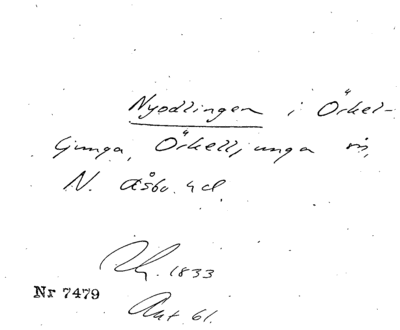 Nyodlingen i Örkel-
ljunga, Örkelljunga
N. Åsbo hd.
1833
Nr 7479
Ant 61.